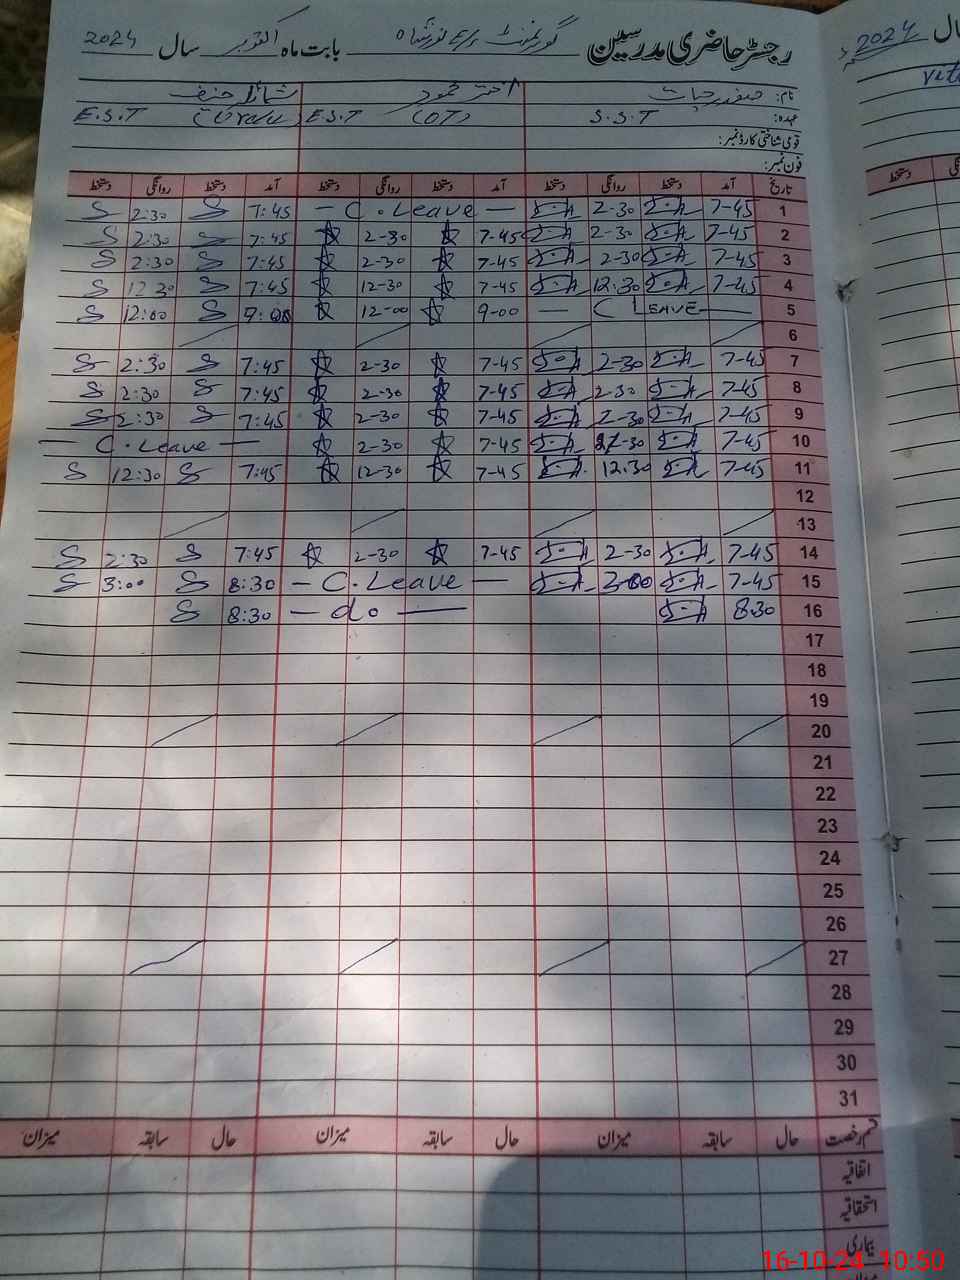 رجسٹر حاضری مدرسین گورنمنٹ بابت ماہ اکتوبر سال 2024
2024
نام: صفدر حیات اختر محمود حنیف
عہدہ: S.S.T (OT) E.S.T E.S.T
قومی شناختی کارڈ نمبر:
فون نمبر:
تاریخ آمد دستخط روانگی دستخط آمد دستخط روانگی دستخط آمد دستخط روانگی دستخط
1 7-45 2-30 — C. Leave — 7:45 2:30
2 7-45 2-30 7-45 2-30 7:45 2:30
3 7-45 2-30 7-45 2-30 7:45 2:30
4 7-45 12:30 7-45 12-30 7:45 12 30
5 — C LEAVE — 9-00 12-00 9:00 12:00
6
7 7-45 2-30 7-45 2-30 7:45 2:30
8 7-45 2-30 7-45 2-30 7:45 2:30
9 7-45 2-30 7-45 2-30 7:45 2:30
10 7-45 2-30 7-45 2-30 — C. Leave —
11 7-45 12.30 7-45 12-30 7:45 12:30
12
13
14 7-45 2-30 7-45 2-30 7:45 2:30
15 7-45 3-00 — C. Leave — 8:30 3:00
16 8.30 — do — 8:30
17
18
19
20
21
22
23
24
25
26
27
28
29
30
31
قسم رخصت حال سابقہ میزان حال سابقہ میزان حال سابقہ میزان
اتفاقیہ
استحقاقیہ
بیماری
16-10-24 10:50